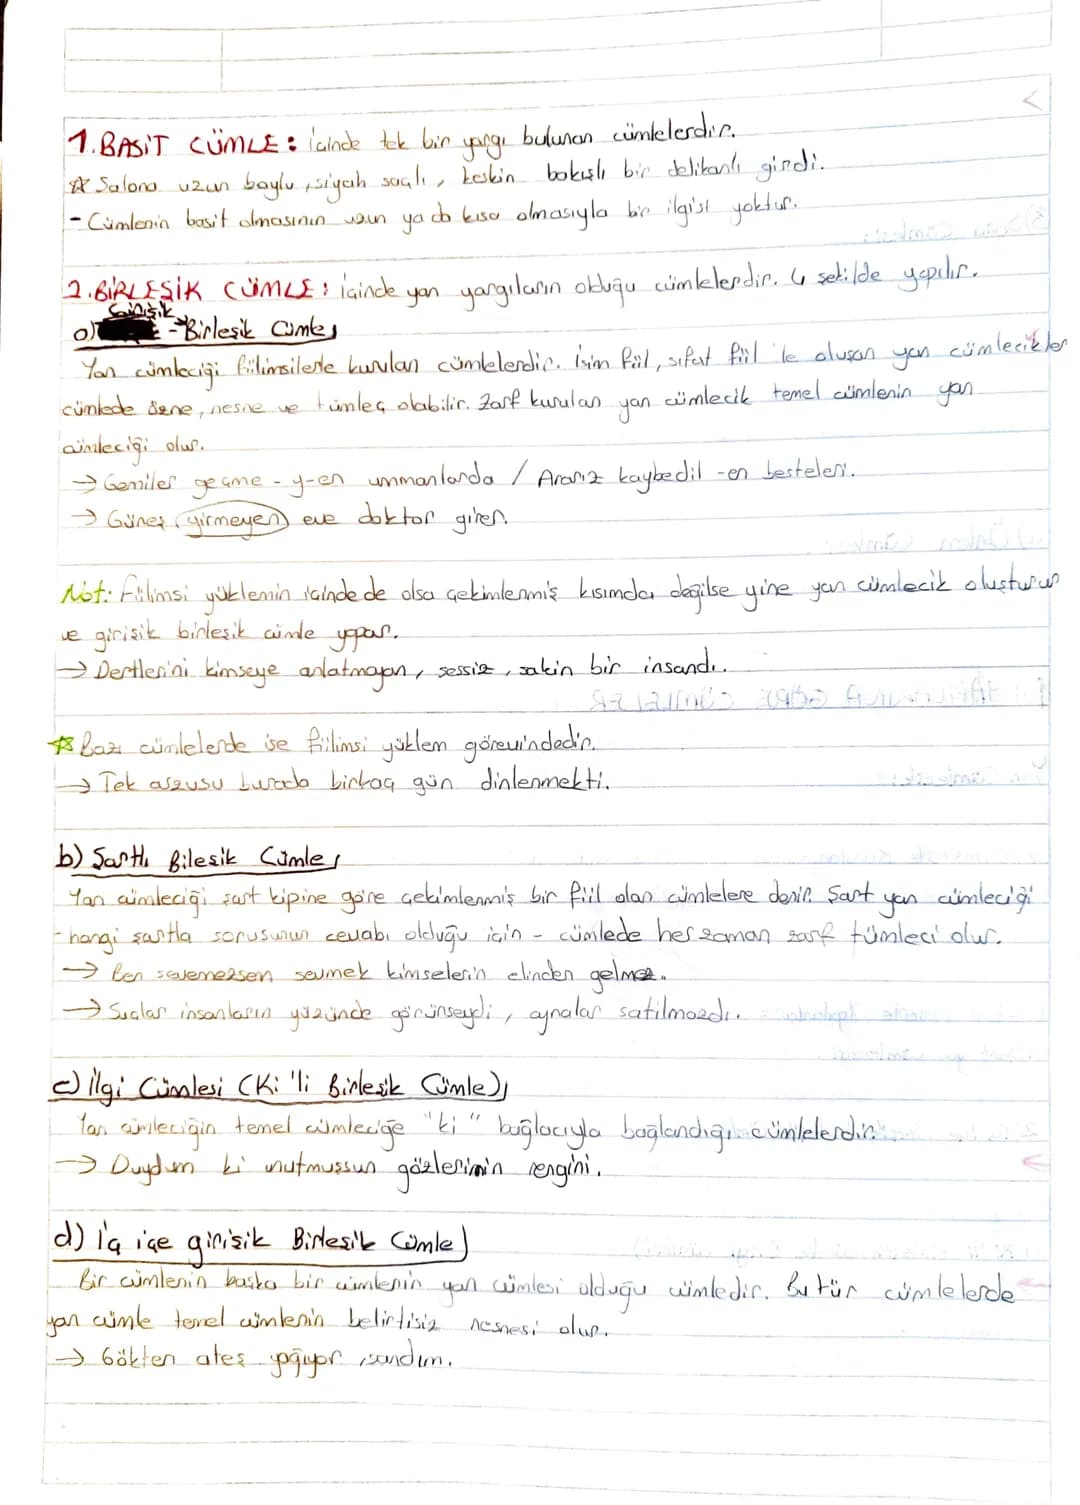 1.BASİT CÜMLE: İçinde tek bir yargı bulunan cümlelerdir.
☆ Salona uzun boylu, siyah saçlı, keskin bakışlı bir delikanlı girdi.
- Cümlenin basit olmasının uzun ya da kısa olmasıyla bir ilgisi yoktur.
2.BİRLEŞİK CÜMLE: İçinde yan yargıların olduğu cümlelerdir. 4 şekilde yapılır.
Girişik
a) - Birleşik Cümle
Yan cümleciği fiilimsilerle kurulan cümlelerdir. İsim fiil, sıfat fiil 'le oluşan yan cümlecikler
cümlede özne, nesne ve tümleç olabilir. Zarf kurulan yan cümlecik temel cümlenin yan
cümleciği olur.
→ Gemiler geçme - y-en ummanlarda / Ararız kaybedil -en besteleri.
→ Güneş girmeyen eve doktor girer.
Not: Fiilimsi yüklemin içinde de olsa çekimlenmiş kısımda değilse yine yan cümlecik oluşturur
ve girişik birleşik cümle yapar.
→ Dertlerini kimseye anlatmayan, sessiz, sakin bir insandı.
☆ Bazı cümlelerde ise fiilimsi yüklem görevindedir.
→ Tek arzusu burada birkaç gün dinlenmekti.
b) Şartlı Bileşik Cümle
Yan cümleciği şart kipine göre çekimlenmiş bir fiil olan cümlelere denir. Şart yan cümleciği
- hangi şartla sorusunun cevabı olduğu için - cümlede her zaman zarf tümleci olur.
→ Ben sevemezsen sevmek kimselerin elinden gelmez.
→ Suçlar insanların yüzünde görünseydi, aynalar satılmazdı.
c) İlgi Cümlesi (Ki 'li Birleşik Cümle)
Yan cümleciğin temel cümleciğe "ki" bağlacıyla bağlandığı cümlelerdir.
→ Duydum ki unutmuşsun gözlerimin rengini.
d) İç içe girişik Birleşik Cümle
Bir cümlenin başka bir cümlenin yan cümlesi olduğu cümledir. Bu tür cümlelerde
yan cümle temel cümlenin belirtisiz nesnesi olur.
→ Gökten ateş yağıyor sandım.